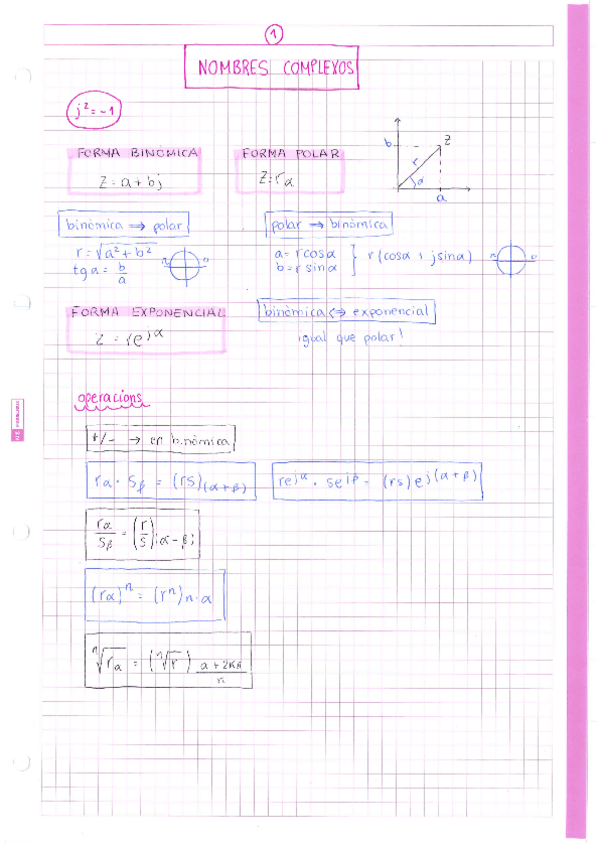 1
NOMBRES COMPLEXOS
j² = -1
FORMA BINÒMICA
Z = a + bj
FORMA POLAR
Z = r_α
b
Z
r
α
a
binòmica ⇒ polar
r = √(a² + b²)
tg α = b/a
π 0
polar ⇒ binòmica
a = r cos α
b = r sin α
} r (cos α + j sin α)
π 0
FORMA EXPONENCIAL
Z = r e^(jα)
binòmica ⇔ exponencial
igual que polar!
operacions
+/- → en binòmica
r_α · s_β = (rs)_(α+β)
re^(jα) · se^(jβ) = (rs) e^(j(α+β))
r_α / s_β = (r/s)_(α-β)
(r_α)^n = (r^n)_(n·α)
ⁿ√(r_α) = (ⁿ√r)_((α + 2Kπ)/n)